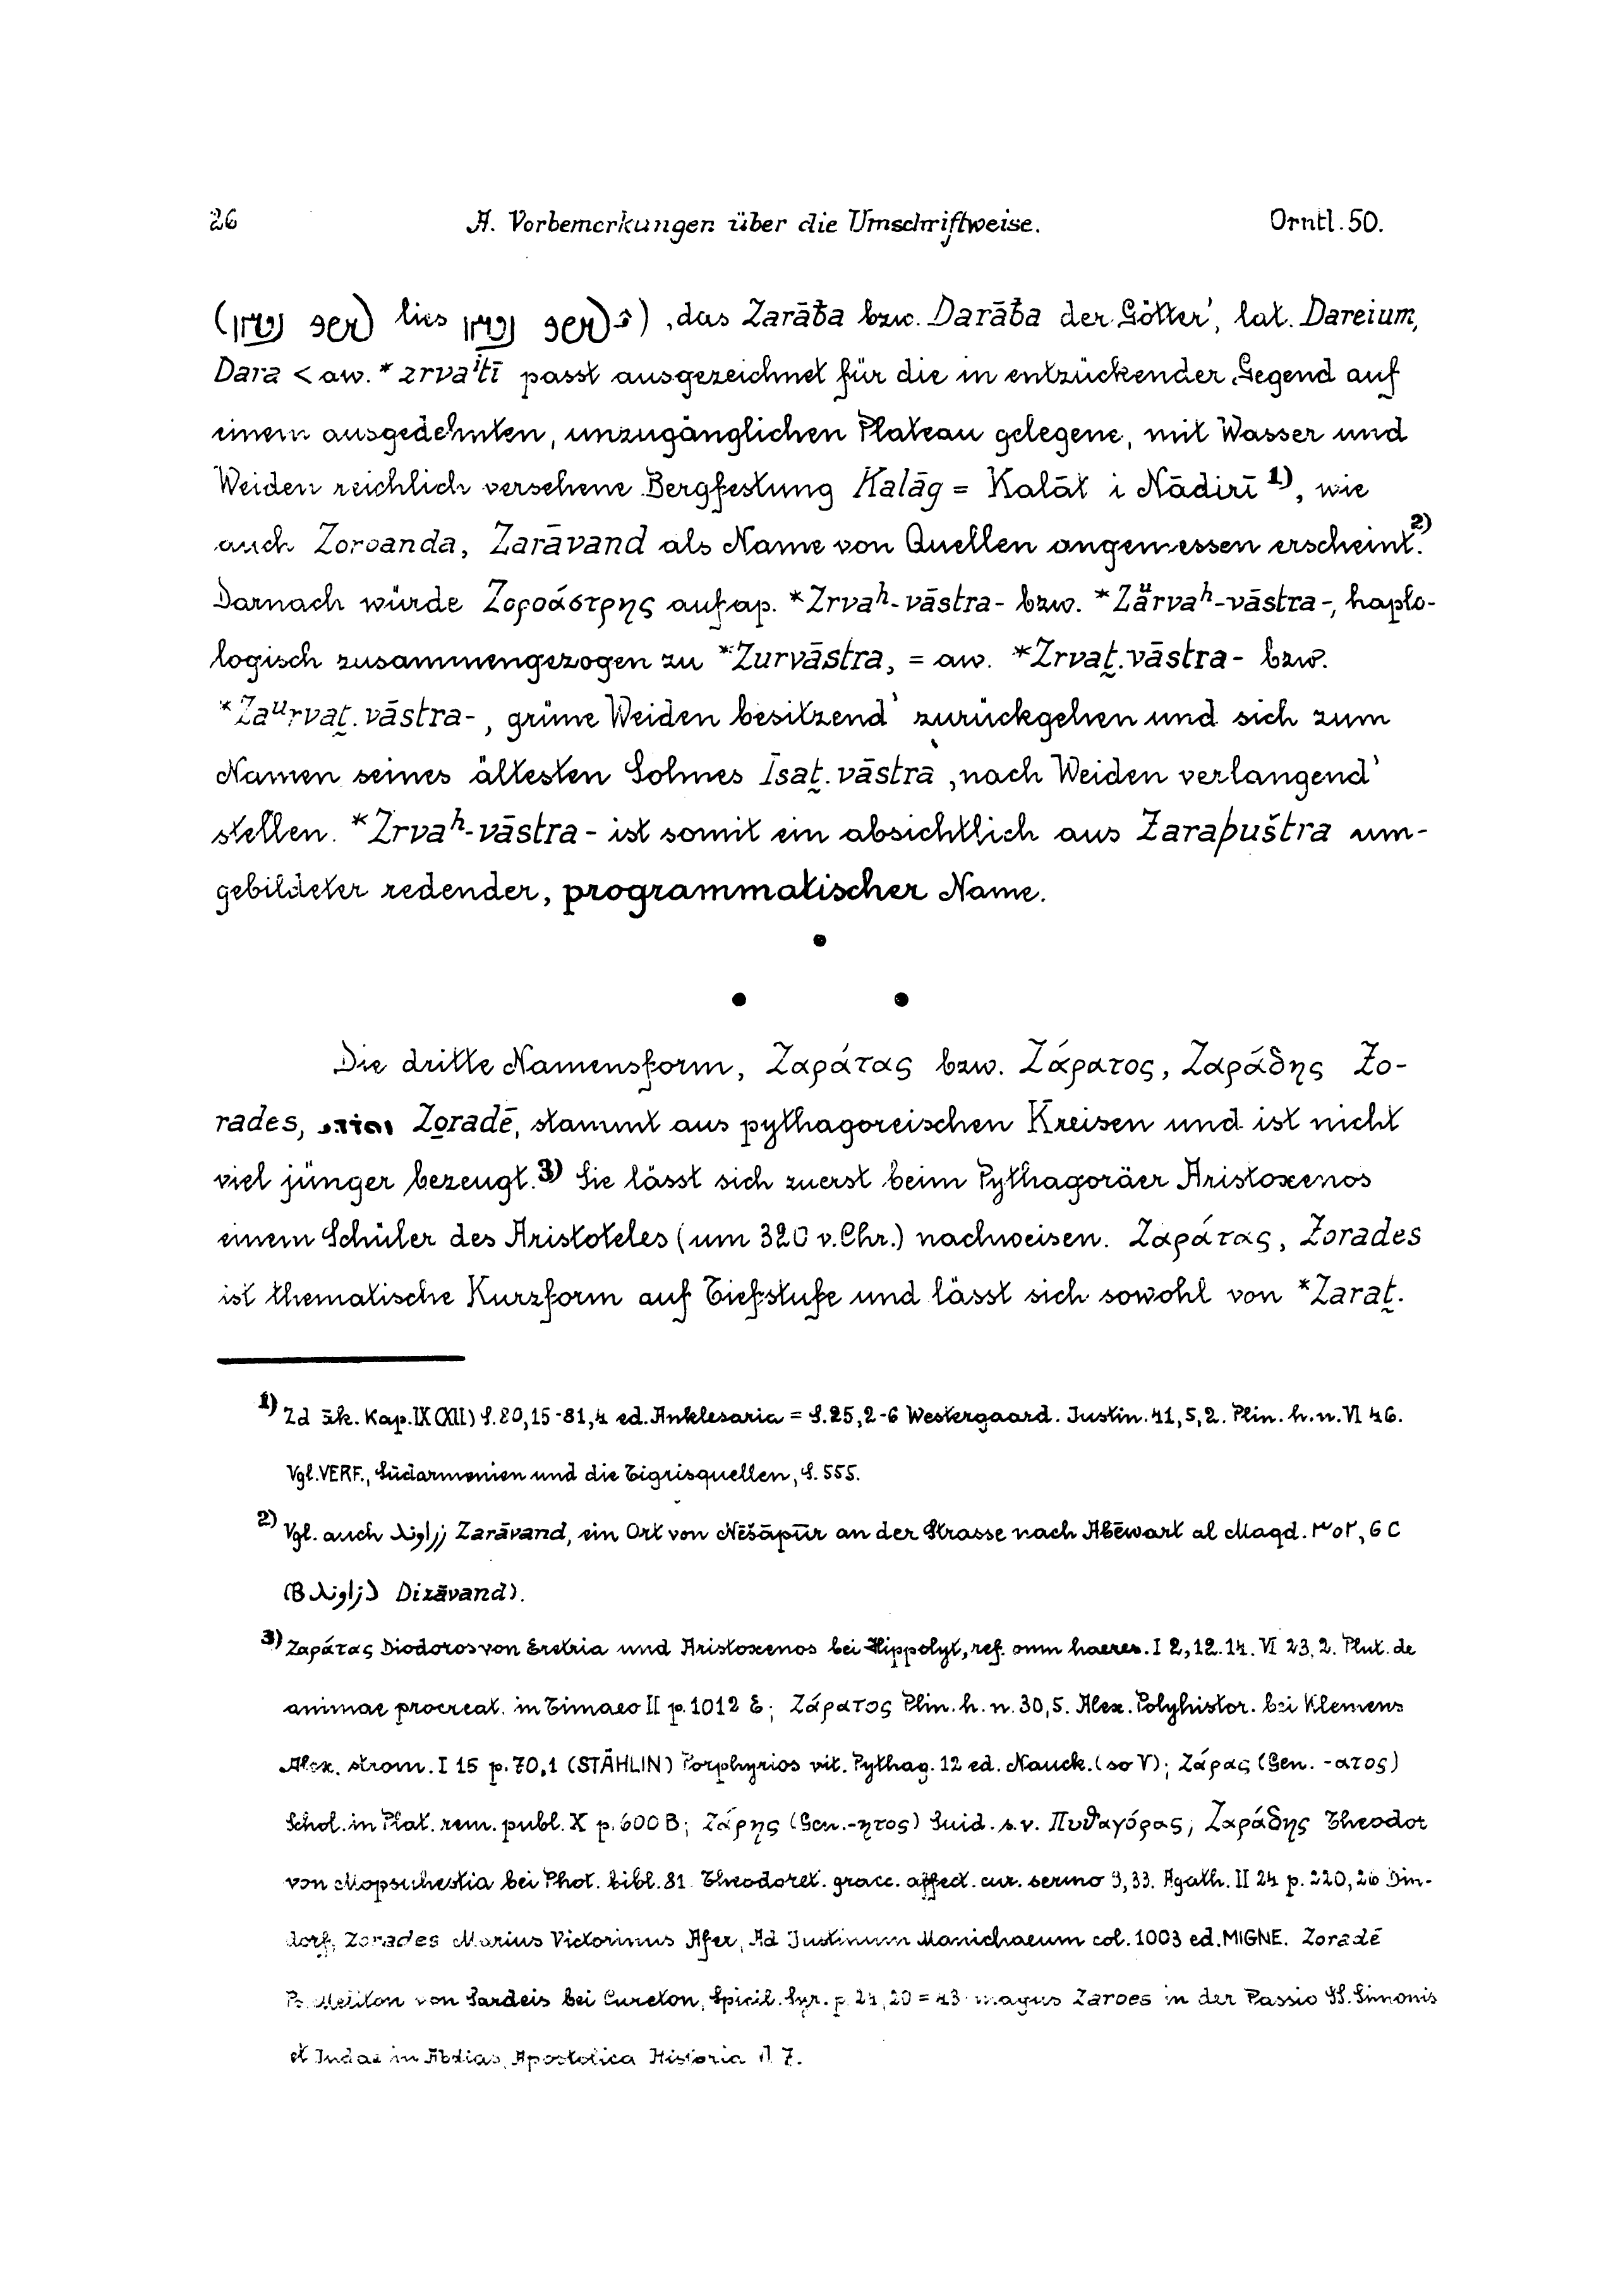 26 A. Vorbemerkungen über die Umschriftweise. Orntl. 50.
lies ) ‚das Zarāƀa bzw. Darāƀa der Götter‘, lat. Dareium,
Dara < aw. *zrvaⁱtī passt ausgezeichnet für die in entzückender Gegend auf
einem ausgedehnten, unzugänglichen Plateau gelegene, mit Wasser und
Weiden reichlich versehene Bergfestung Kalāg = Kalāt i Nādirī 1), wie
auch Zoroanda, Zarāvand als Name von Quellen angemessen erscheint. 2)
Darnach würde Ζοροάστρης auf ap. *Zrvaʰ-vāstra- bzw. *Zā̆rvaʰ-vāstra-, haplo-
logisch zusammengezogen zu *Zurvāstra, = aw. *Zrvat̰.vāstra- bzw.
*Zaᵘrvat̰.vāstra- ‚grüne Weiden besitzend‘ zurückgehen und sich zum
Namen seines ältesten Sohnes Īsat̰.vāstra ‚nach Weiden verlangend‘
stellen. *Zrvaʰ-vāstra- ist somit ein absichtlich aus Zaraþuštra um-
gebildeter redender, programmatischer Name.
Die dritte Namensform, Ζαράτας bzw. Ζάρατος, Ζαράδης Zo-
rades, Zoradē, stammt aus pythagoreischen Kreisen und ist nicht
viel jünger bezeugt. 3) Sie lässt sich zuerst beim Pythagoräer Aristoxenos
einem Schüler des Aristoteles (um 320 v. Chr.) nachweisen. Ζαράτας, Zorades
ist thematische Kurzform auf Tiefstufe und lässt sich sowohl von *Zarat̰.
1) Zd āk. Kap. IX (XII) S. 80,15-81,4 ed. Anklesaria = S. 25,2-6 Westergaard. Justin. 41,5,2. Plin. h. n. VI 46.
Vgl. VERF., Südarmenien und die Tigrisquellen, S. 555.
2) Vgl. auch زراوند Zarāvand, ein Ort von Nēšāpūr an der Strasse nach Abēwart al Maqd. ٣٥٢, 6 C
(B دزاوند Dizāvand).
3) Ζαράτας Diodoros von Eretria und Aristoxenos bei Hippolyt, ref. omn haeres. I 2,12.14. VI 23,2. Plut. de
animae procreat. in Timaeo II p. 1012 E; Ζάρατος Plin. h. n. 30,5. Alex. Polyhistor. bei Klemens
Alex. strom. I 15 p. 70,1 (STÄHLIN) Porphyrios vit. Pythag. 12 ed. Nauck. (so V); Ζάρας (Gen. -ατος)
Schol. in Plat. rem. publ. X p. 600 B; Ζάρης (Gen. -ητος) Suid. s.v. Πυθαγόρας; Ζαράδης Theodor
von Mopsuhestia bei Phot. bibl. 81 Theodoret. graec. affect. cur. sermo 9,33. Agath. II 24 p. 220,26 Din-
dorf, Zorades Marius Victorinus Afer, Ad Justinum Manichaeum col. 1003 ed. MIGNE. Zoradē
Ps. Meliton von Sardeis bei Cureton, Spicil. Syr. p. 24,20 = 43 magus Zaroes in der Passio SS. Simonis
et Judae in Abdias, Apostolica Historia 7.